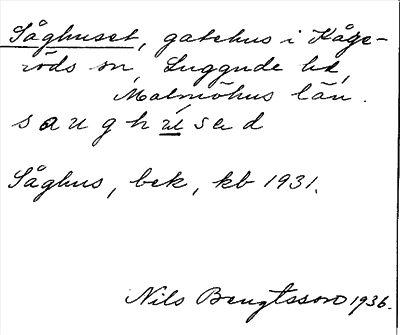 Såghuset, gatehus i Kåge-
röds sn, Luggude hd,
Malmöhus län.
s a u g h ú s e d
Såghus, bek, kb 1931.
Nils Bengtsson 1936.